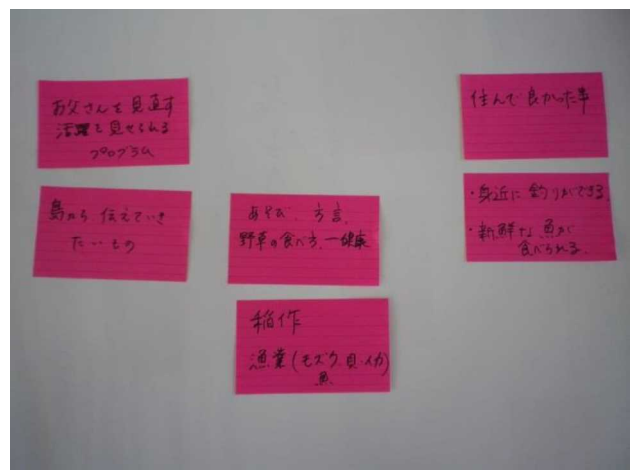 お父さんを見直す
活躍を見せられる
プログラム
島から伝えていき
たいもの
あそび、方言、
野草の食べ方、
稲作
漁業(モズク、貝・イカ)
魚
住んで良かった事
・身近に釣りができる。
・新鮮な魚が
食べられる。